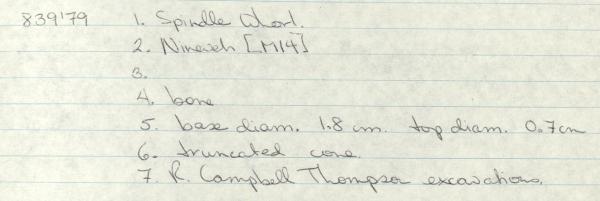 839'79 1. Spindle Whorl.
2. Nineveh [M14]
3.
4. bone
5. base diam. 1.8 cm. top diam. 0.7cm
6. truncated cone.
7. R. Campbell Thompson excavations.